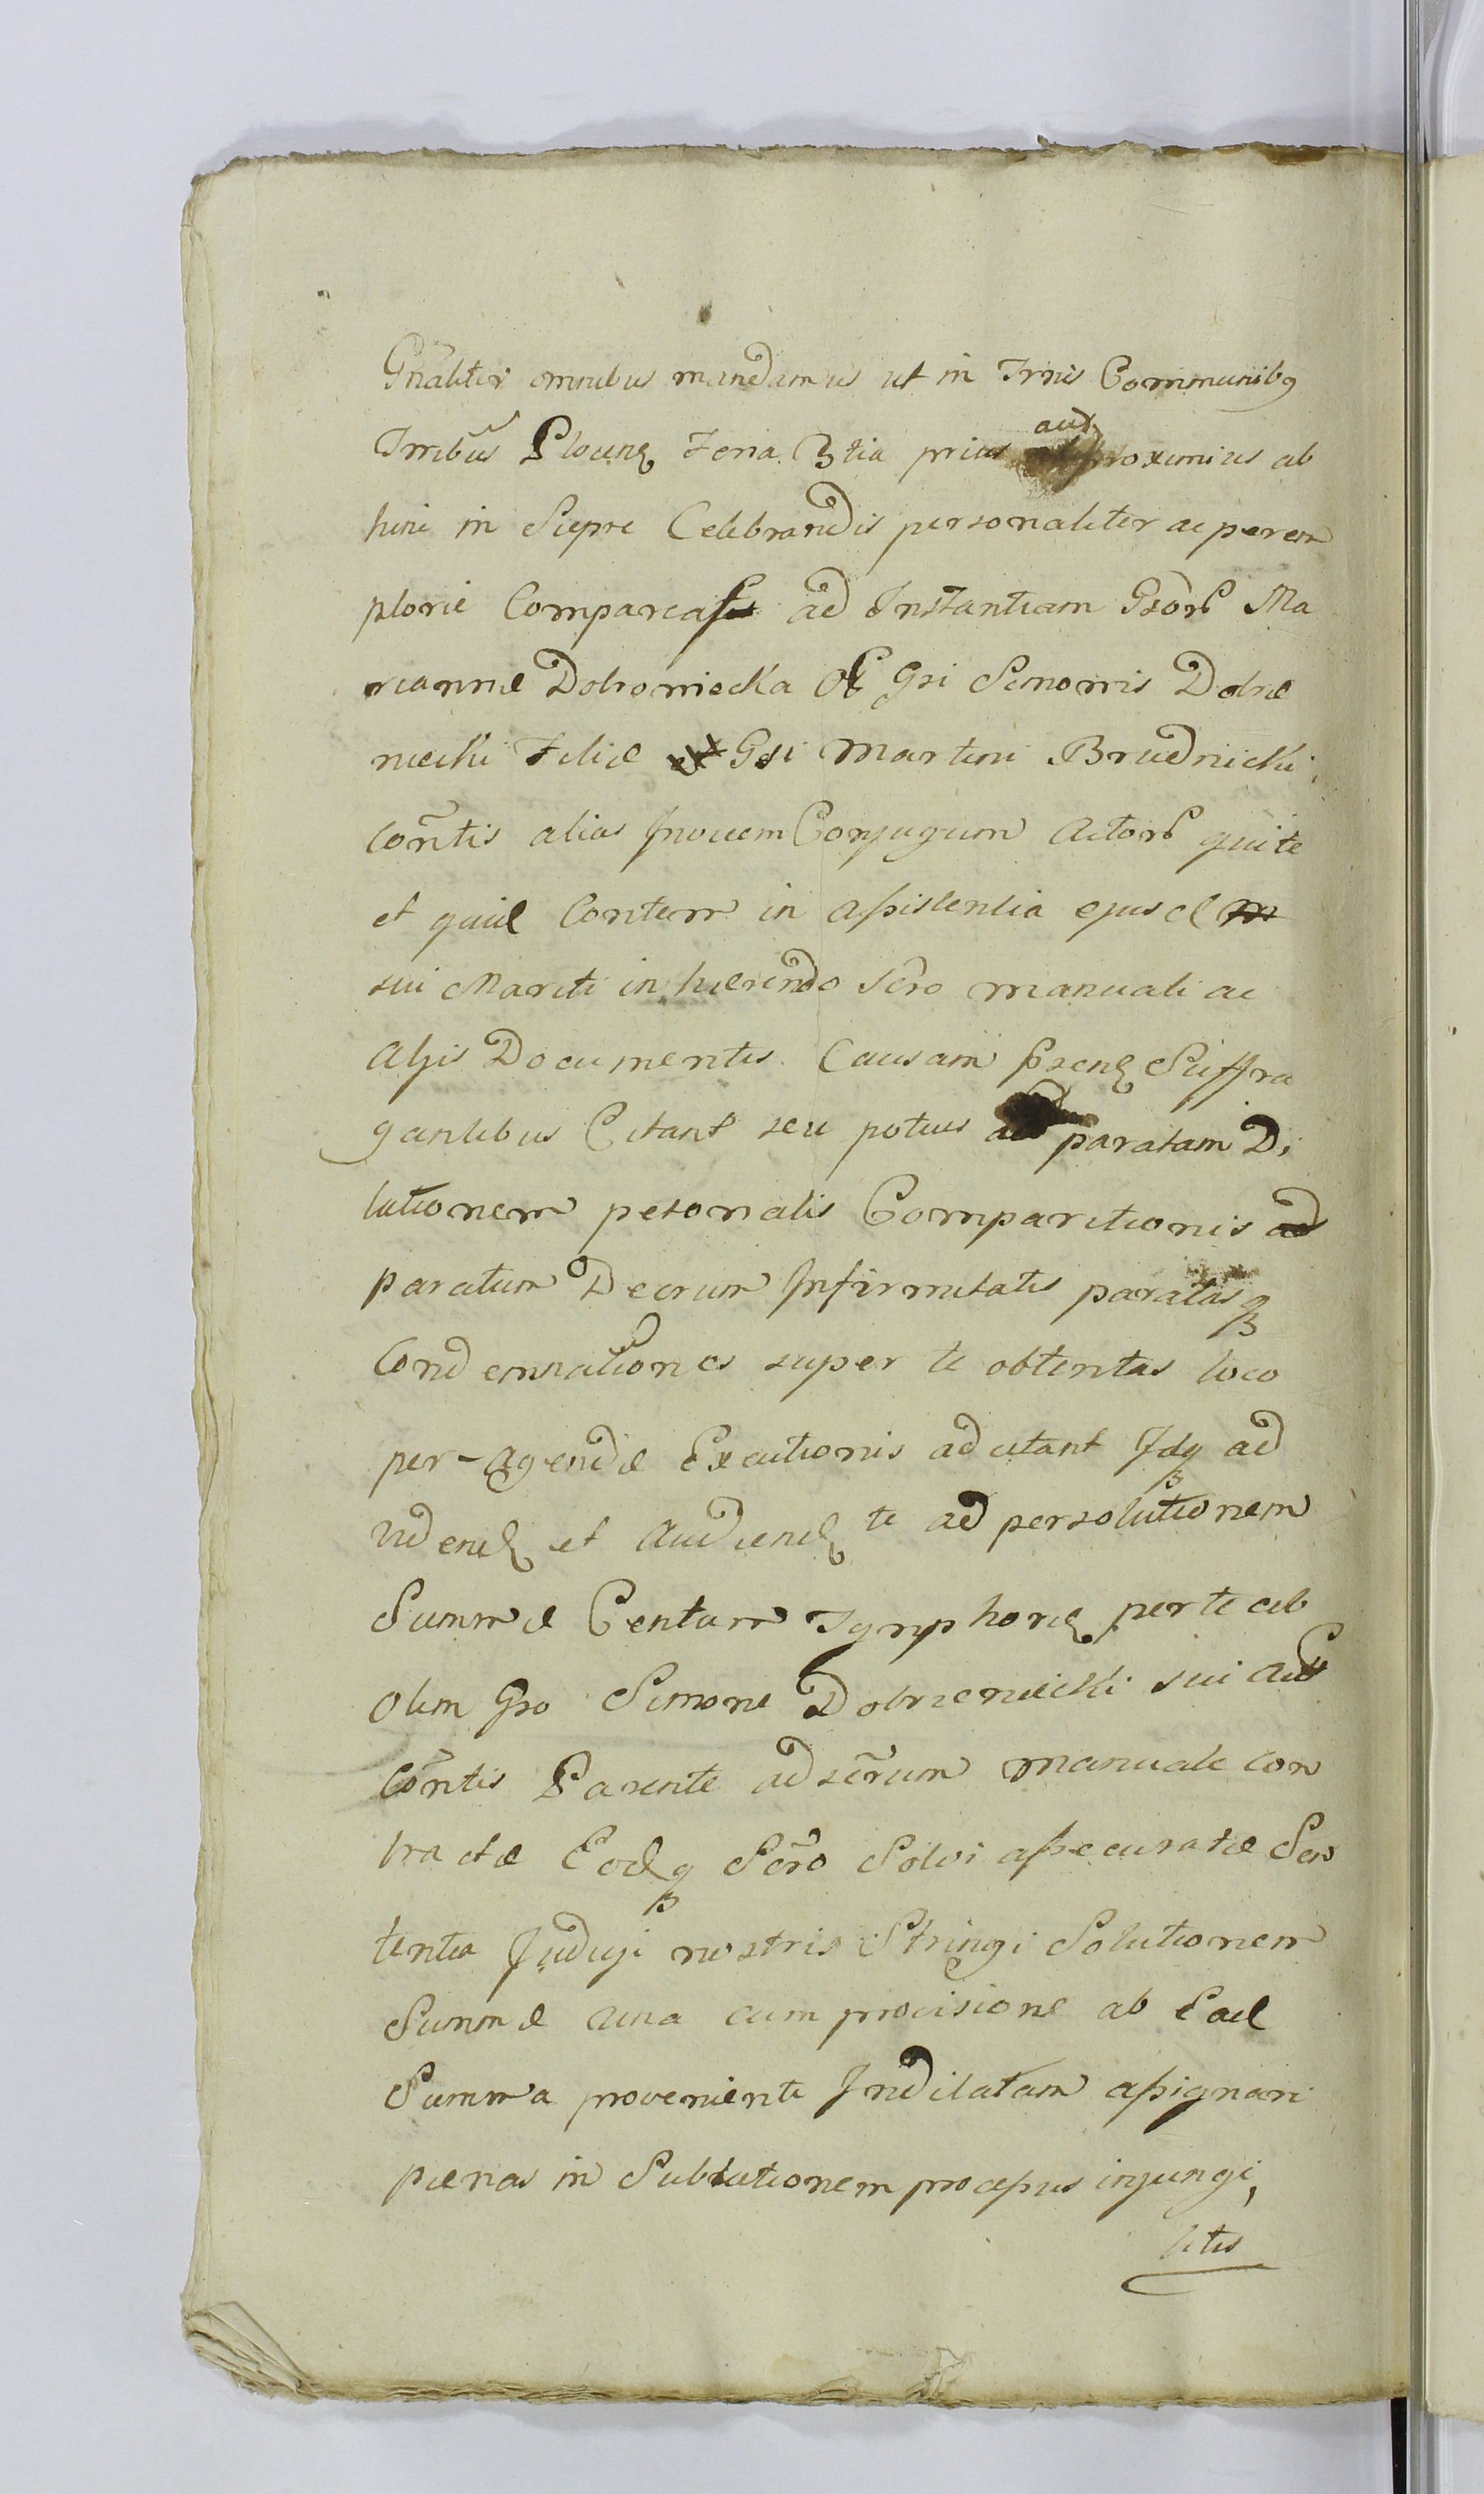 Gnãliter omnibus mandamus ut in Trnis Communibq
Trribus Plocens Feria 3tia prius aut proximius ab
hinc in Siepre Celebrandis personaliter ac perem
ptorie Compareas ad Instantiam Gsor Ma
riannæ Dobrniecka Gsi Simonis Dobrie
niecki Filiæ Gsi Martini Brudnicki
Cõntis alias Invicem Conjugum Actor qui te
et quæ Contem in assistentia ejusd
sui Mariti inhærendo Scro manuali ac
Alijs Documentis Causam psens Suffra
gantibus Citant seu potius ad paratam Di
lationem pesonalis Comparitionis ad
paratum Decrum Infirmitatis paratasq
Condemnationes super te obtentas loco
per-agendæ Exeutionis adcitant Idq ad
videnđ et Audienđ te ad persolutionem
Summæ Centum Tynphorũ per te ab
Olim Gso Simone Dobrieniecki sui Act
Cõntis Parente ad scrum manuale con
tractæ Eodq Scro Solvi assecuratæ Sen
tentia Judiÿ nostris Stringi Solutionem
Summæ una cum provisione ab Ead
Summa proveniente Indilatam assignari
pænas in Sublationem processus injungi,
litis